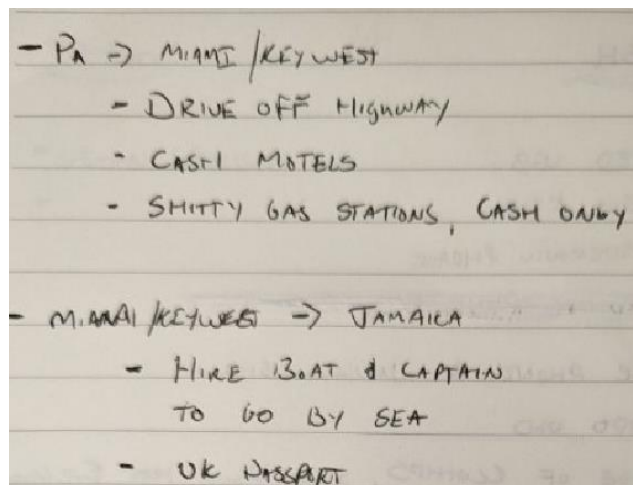 - PA -> MIAMI/KEYWEST
- DRIVE OFF HIGHWAY
- CASH MOTELS
- SHITTY GAS STATIONS, CASH ONLY
- MIAMI/KEYWEST -> JAMAICA
- HIRE BOAT & CAPTAIN
TO GO BY SEA
- UK PASSPORT